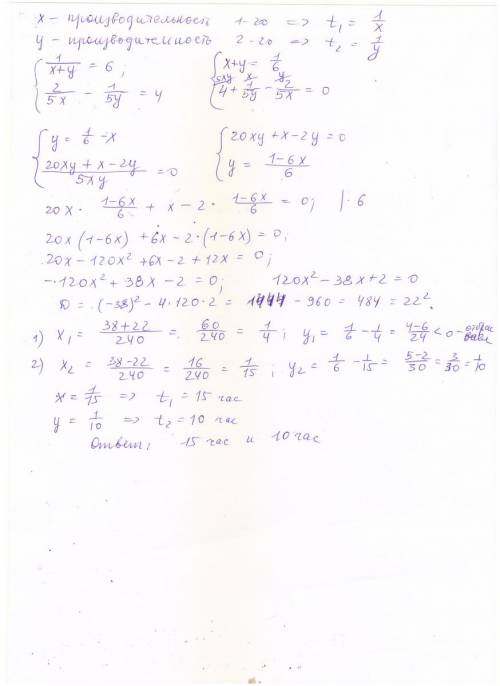 x - производительность 1-го => t₁ = 1/x
y - производительность 2-го => t₂ = 1/y
{ 1/(x+y) = 6; { x+y = 1/6
{ 2/(5x) - 1/(5y) = 4 { 4 + 1/(5y) - 2/(5x) = 0
{ y = 1/6 - x { 20xy + x - 2y = 0
{ (20xy + x - 2y)/(5xy) = 0 { y = (1-6x)/6
20x · (1-6x)/6 + x - 2 · (1-6x)/6 = 0; |·6
20x(1-6x) + 6x - 2·(1-6x) = 0;
20x - 120x² + 6x - 2 + 12x = 0;
-120x² + 38x - 2 = 0; 120x² - 38x + 2 = 0
D = (-38)² - 4·120·2 = 1444 - 960 = 484 = 22².
1) x₁ = (38+22)/240 = 60/240 = 1/4; y₁ = 1/6 - 1/4 = (4-6)/24 < 0 -
2) x₂ = (38-22)/240 = 16/240 = 1/15; y₂ = 1/6 - 1/15 = (5-2)/30 = 3/30 = 1/10
x = 1/15 => t₁ = 15 час
y = 1/10 => t₂ = 10 час
Ответ: 15 час и 10 час